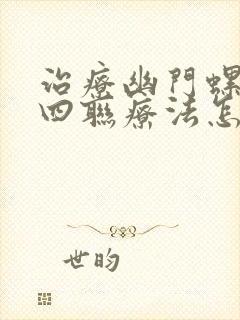 治療幽門螺
四聯療法怎
世昀